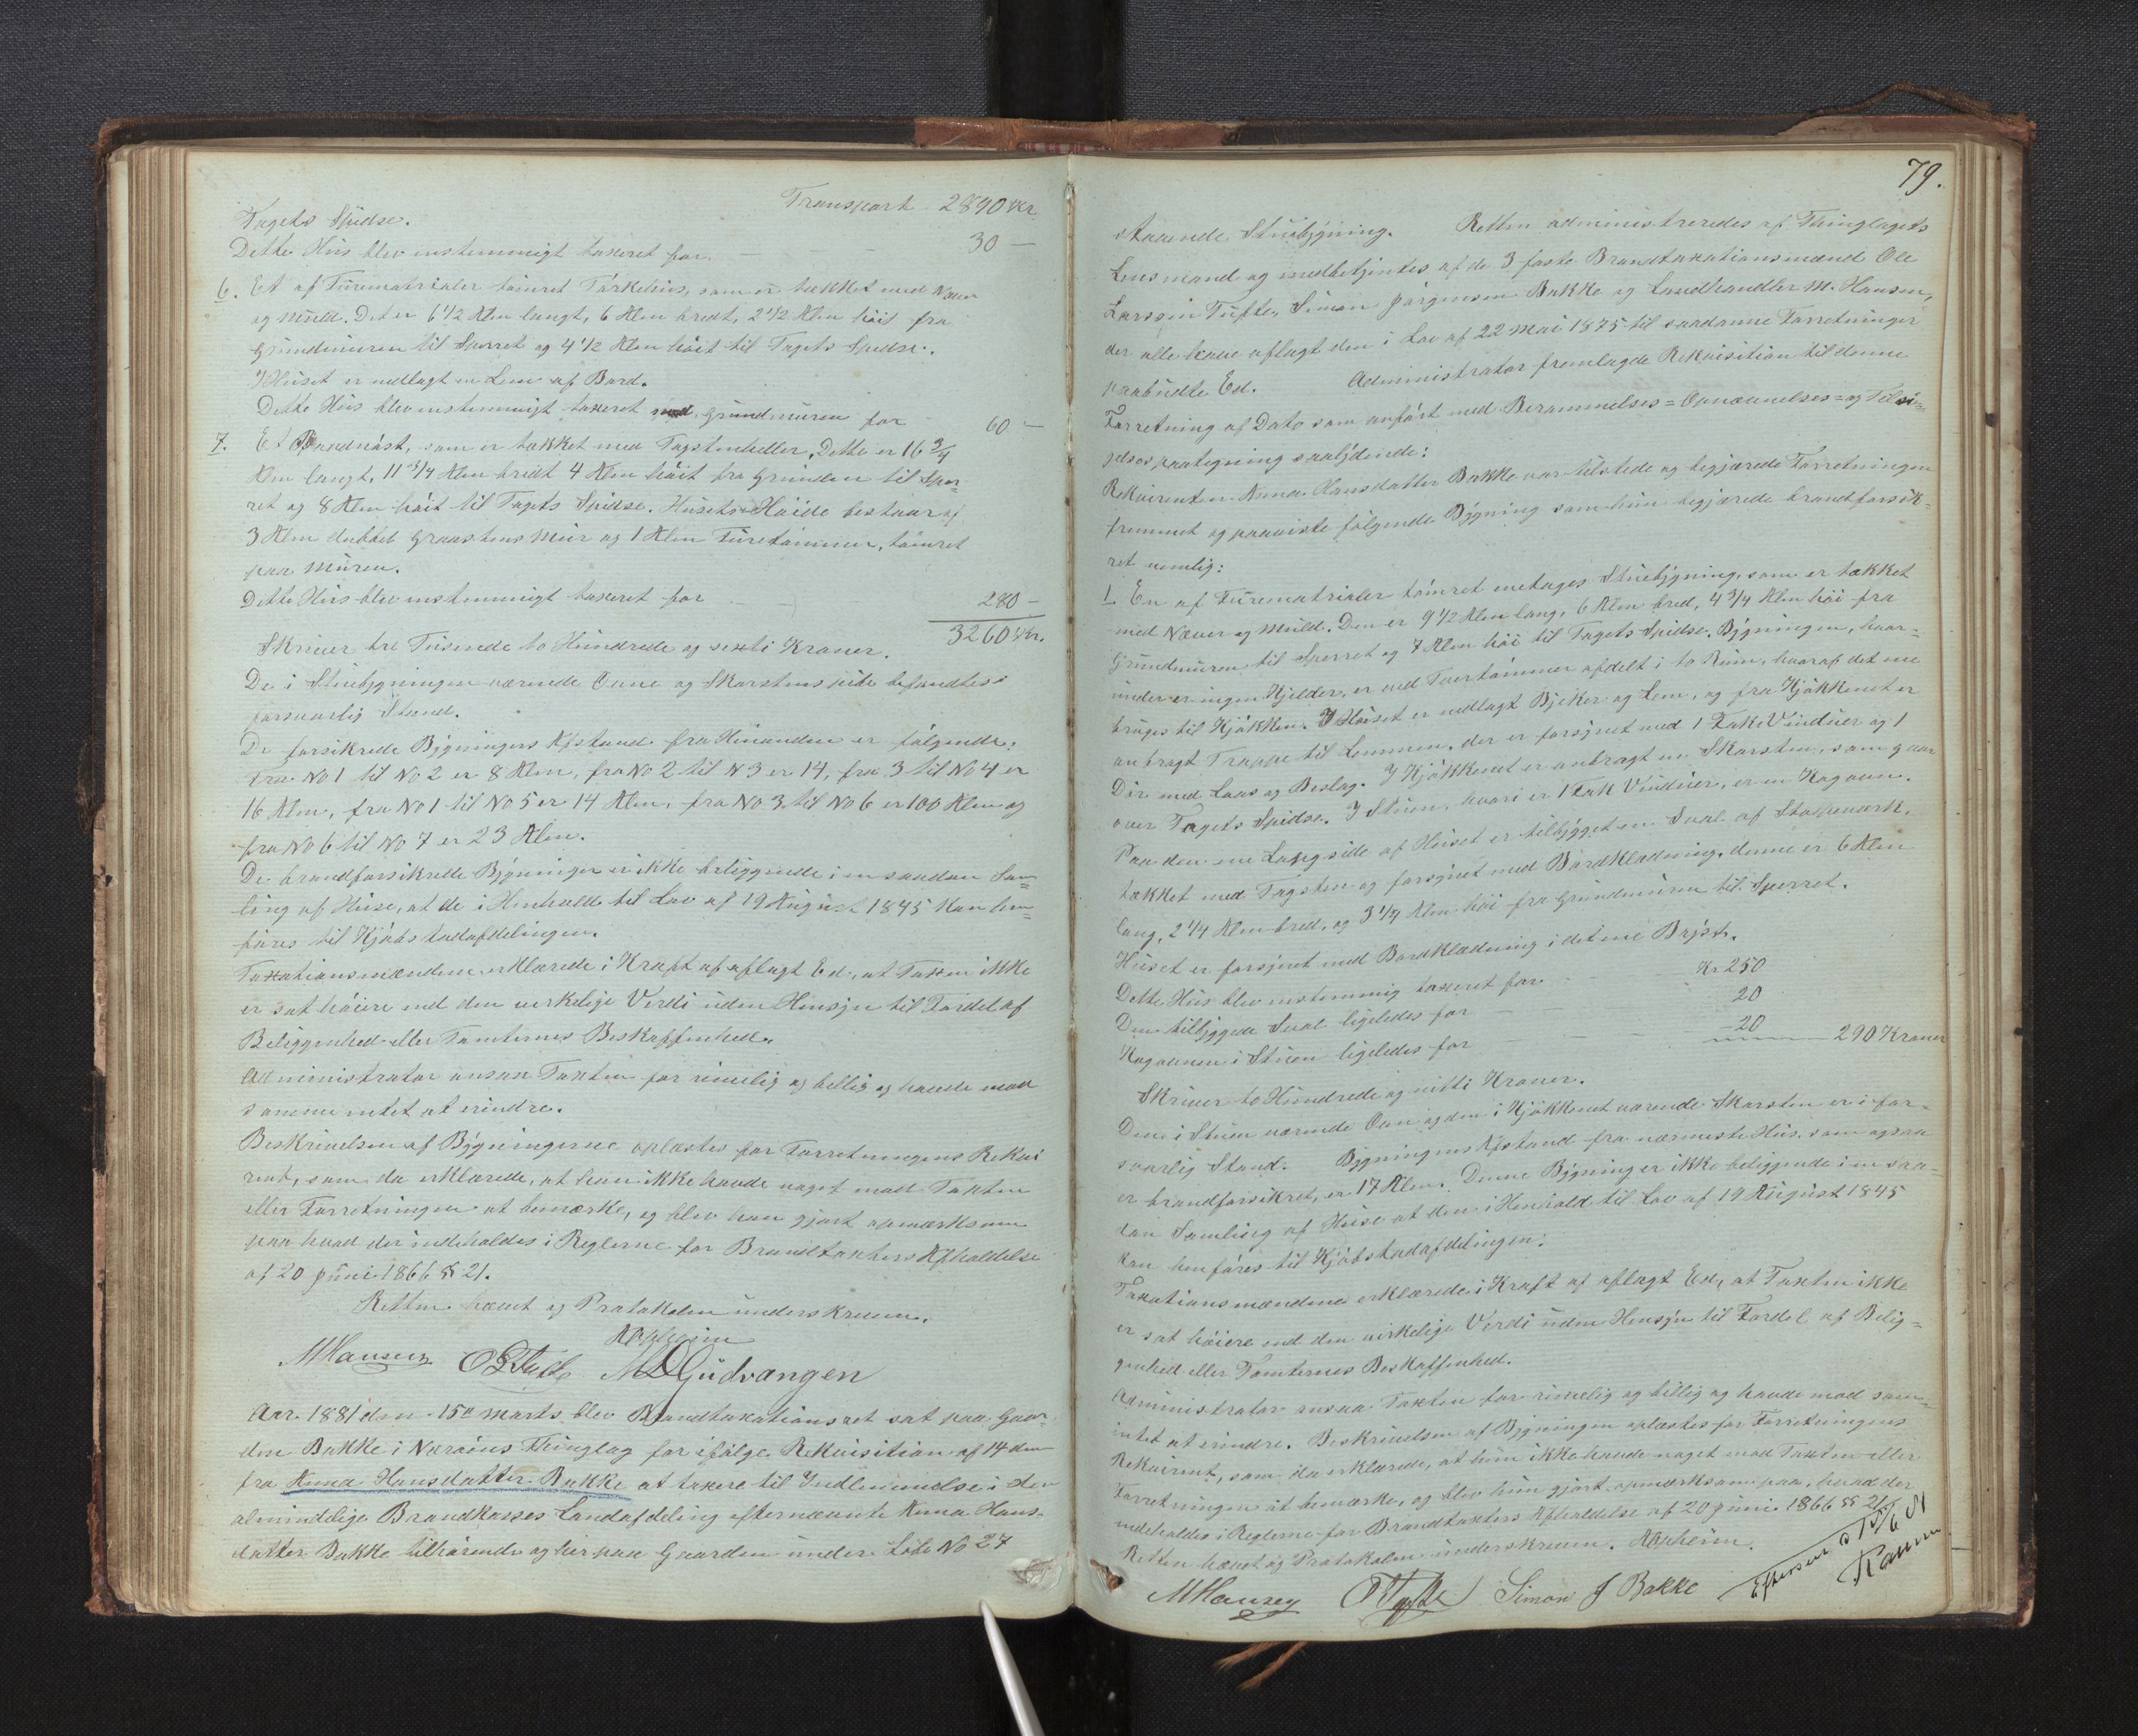 Transport 2890 Kr
Tagets Spidse.
Dette Hus blev enstemmigt taxeret for — 30 —
6. Et af Furematrialer tømret Tørkehus, som er tækket med Næver
og Muld. Det er 6 1/2 Alen langt, 6 Alen bredt, 2 1/2 Alen høit fra
Grundmuren til Sperret og 4 1/2 Alen høit til Tagets Spidse.
I Huset er nedlagt en Lem af Bord.
Dette Hus blev enstemmigt taxeret med Grundmuren for 60 —
7. Et Vandnøst, som er tækket med Tagstenheller. Dette er 16 3/4
Alen langt, 11 3/4 Alen bredt 4 Alen høit fra Grunden til Sper=
ret og 8 Alen høit til Tagets Spidse. Husets Høide bestaar af
3 Alen dubbel Graastens Mur og 1 Alen Furetømmer, tømret
paa Muren.
Dette Hus blev enstemmigt taxeret for 280 —
3260 Kr.
Skriver tre Tusende to Hundrede og sexti Kroner.
De i Stuebygningen værende Ovne og Skorstenspibe befandtes i
forsvarlig Stand.
De forsikrede Bygningers Afstand fra Hinanden er følgende:
Fra No 1 til No 2 er 8 Alen, fra No 2 til N 3 er 14, fra 3 til No 4 er
16 Alen, fra No 1 til No 5 er 14 Alen, fra No 3 til No 6 er 100 Alen og
fra No 6 til No 7 er 23 Alen.
De brandforsikrede Bygninger er ikke beliggende i en saadan Sam=
ling af Huse, at de i Henhold til Lov af 19 August 1845 kan hen=
føres til Kjøbstadafdelingen.
Taxationsmændene erklærede i Kraft af aflagt Ed, at Taxten ikke
er sat høiere end den verkelige Verdi uden Hensyn til Fordel af
Beliggenhed eller Tomternes Beskaffenhed.
Administrator ansaa Taxten for rimelig og billig og havde mod
samme intet at erindre.
Beskrivelsen af Bygningerne oplæstes for Forretningens Rekvi
rent, som da erklærede, at han ikke havde noget mod Taxten
eller Forretningen at bemærke, og blev han gjort opmærksom
paa hvad der indeholdes i Reglerne for Brandtaxters Afholdelse
af 20 Juni 1866 §§ 21.
Retten hævet og Protokollen underskreven.
MHansen
Gudvangen
Aar 1881 den 15de Marts blev Brandtaxationsret sat paa Gaar=
den Bakke i Nærøens Thinglag for ifølge Rekvisition af 14 dens
fra Anna Hansdatter Bakke at taxere til Indlemmelse i den
almindelige Brandkasses Landafdeling efternævnte Anna Hans=
datter Bakke tilhørende og her paa Gaarden under Løbe No 27
79.
staaende Stuebygning. Retten administreredes af Thinglagets
Lensmand og medbetjentes af de 3 faste Brandtaxationsmænd Ole
Larssen Tufte, Simon Jørgensen Bakke og Landhandler M. Hansen,
der alle have aflagt den i Lov af 22 Mai 1875 til saadanne Forretninger
paabudte Ed. Administrator fremlagde Rekvisition til denne
Forretning af Dato som anført med Berammelses= Opnævnelses= og Tilsi=
gelsespaategning saalydende:
Rekvirenten Anna Hansdatter Bakke var tilstede og begjærede Forretningen
fremmet og paaviste følgende Bygning som hun begjærede brandforsik=
ret nemlig:
1. En af Furematrialer tømret enetages Stuebygning, som er tækket
med Næver og Muld. Den er 9 1/2 Alen lang, 6 Alen bred, 4 3/4 Alen høi fra
Grundmuren til Sperret og 7 Alen høi til Tagets Spidse. Bygningen, hvor=
under er ingen Kjelder, er ved Tvertømmer afdelt i to Rum, hvoraf det ene
bruges til Kjøkken. I Huset er nedlagt Bjelker og Lem, og fra Kjøkkenet er
anbragt Trappe til Lemmen, der er forsynet med 1 Fak Vinduer og 1
Dør med Laas og Beslag. I Kjøkkenet er anbragt en Skorsten, som gaar
over Tagets Spidse. I Stuen, hvori er 1 Fak Vinduer, er en Kogovn.
Paa den ene Langside af Huset er tilbygget en Sval af Stapværk,
tækket med Tagsten og forsynet med Bordklædning, denne er 6 Alen
lang, 2 1/4 Alen bred, og 3 1/4 Alen høi fra Grundmuren til Sperret.
Huset er forsynet med Bordklædning i det ene Bryst.
Dette Hus blev enstemmig taxeret for Kr 250
Den tilbyggede Sval ligeledes for — — 20
Kogovnen i Stuen ligeledes for — — 20 — 290 Kroner
Skriver to Hundrede og nitti Kroner.
Den i Stuen værende Ovn og den i Kjøkkenet værende Skorsten er i for=
svarlig Stand. Bygningens Afstand fra nærmeste Hus, som ogsaa
er brandforsikret, er 17 Alen. Denne Bygning er ikke beliggende i en saa=
dan Samling af Huse at den i Henhold til Lov af 19 August 1845
kan henføres til Kjøbstadafdelingen.
Taxationsmændene erklærede i Kraft af aflagt Ed, at Taxten ikke
er sat høiere end den virkelige Verdi uden Hensyn til Fordel af Belig=
genhed eller Tomternes Beskaffenhed.
Administrator ansaa Taxten for rimelig og billig og havde mod sam=
intet at erindre. Beskrivelsen af Bygningen oplæstes for Forretningens
Rekvirent, som da erklærede, at hun ikke havde noget mod Taxten eller
Forretningen at bemærke, og blev hun gjort opmærksom paa, hvad der
indeholdes i Reglerne for Brandtaxters Afholdelse af 20 Juni 1866 §§ 21.
Retten hævet og Protokollen underskreven.
MHansen Simon J Bakke
Efterseet